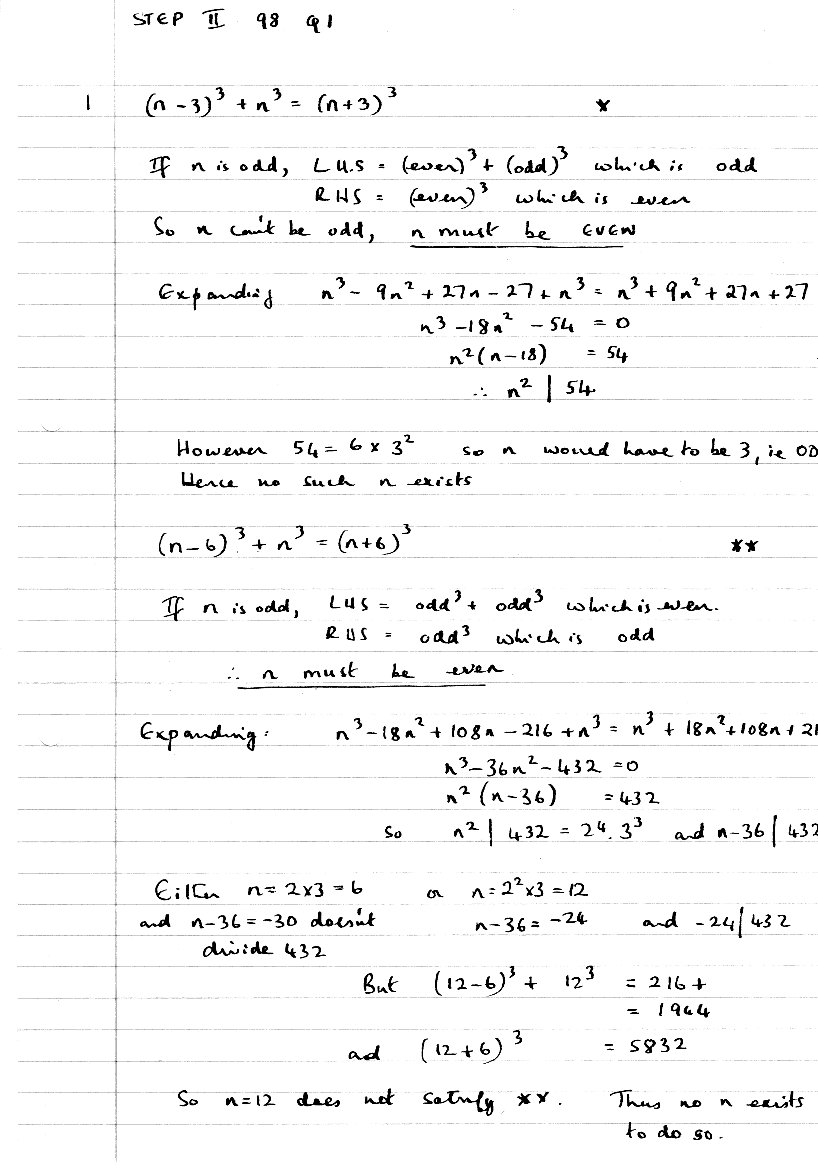 STEP II 98 Q1
1 (n-3)³ + n³ = (n+3)³ *
If n is odd, LHS = (even)³ + (odd)³ which is odd
RHS = (even)³ which is even
So n can't be odd, n must be EVEN
Expanding n³ - 9n² + 27n - 27 + n³ = n³ + 9n² + 27n + 27
n³ - 18n² - 54 = 0
n²(n-18) = 54
∴ n² | 54
However 54 = 6 × 3² so n would have to be 3, ie OD
Hence no such n exists
(n-6)³ + n³ = (n+6)³ **
If n is odd, LHS = odd³ + odd³ which is even.
RHS = odd³ which is odd
∴ n must be even
Expanding: n³ - 18n² + 108n - 216 + n³ = n³ + 18n² + 108n + 21
n³ - 36n² - 432 = 0
n² (n-36) = 432
So n² | 432 = 2⁴. 3³ and n-36 | 432
Either n = 2×3 = 6 or n = 2²×3 = 12
and n-36 = -30 doesn't n-36 = -24 and -24 | 432
divide 432
But (12-6)³ + 12³ = 216 +
= 1944
and (12+6)³ = 5832
So n=12 does not satisfy **. Thus no n exists
to do so.